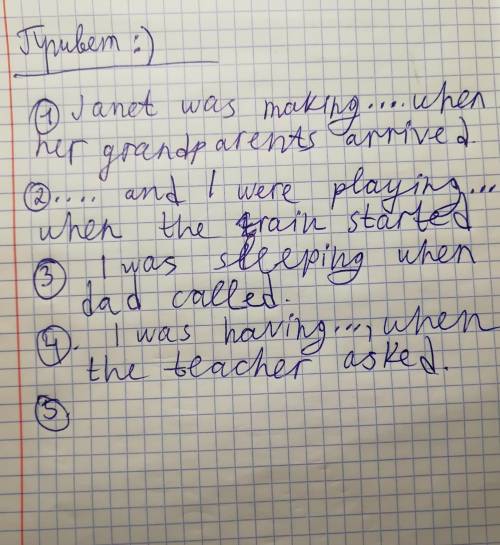 Привет :)
① Janet was making.... when
her grandparents arrived.
②.... and I were playing...
when the train started
③ I was sleeping when
dad called.
④. I was having..., when
the teacher asked.
⑤